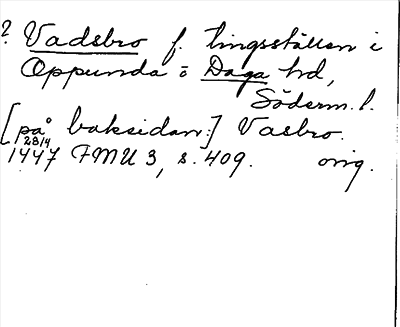 ? Vadsbro f. tingsställen i
Oppunda ō Daga hd,
Söderm. l.
[på baksidan:] Vasbro.
28/4
1447 FMU 3, s. 409. orig.